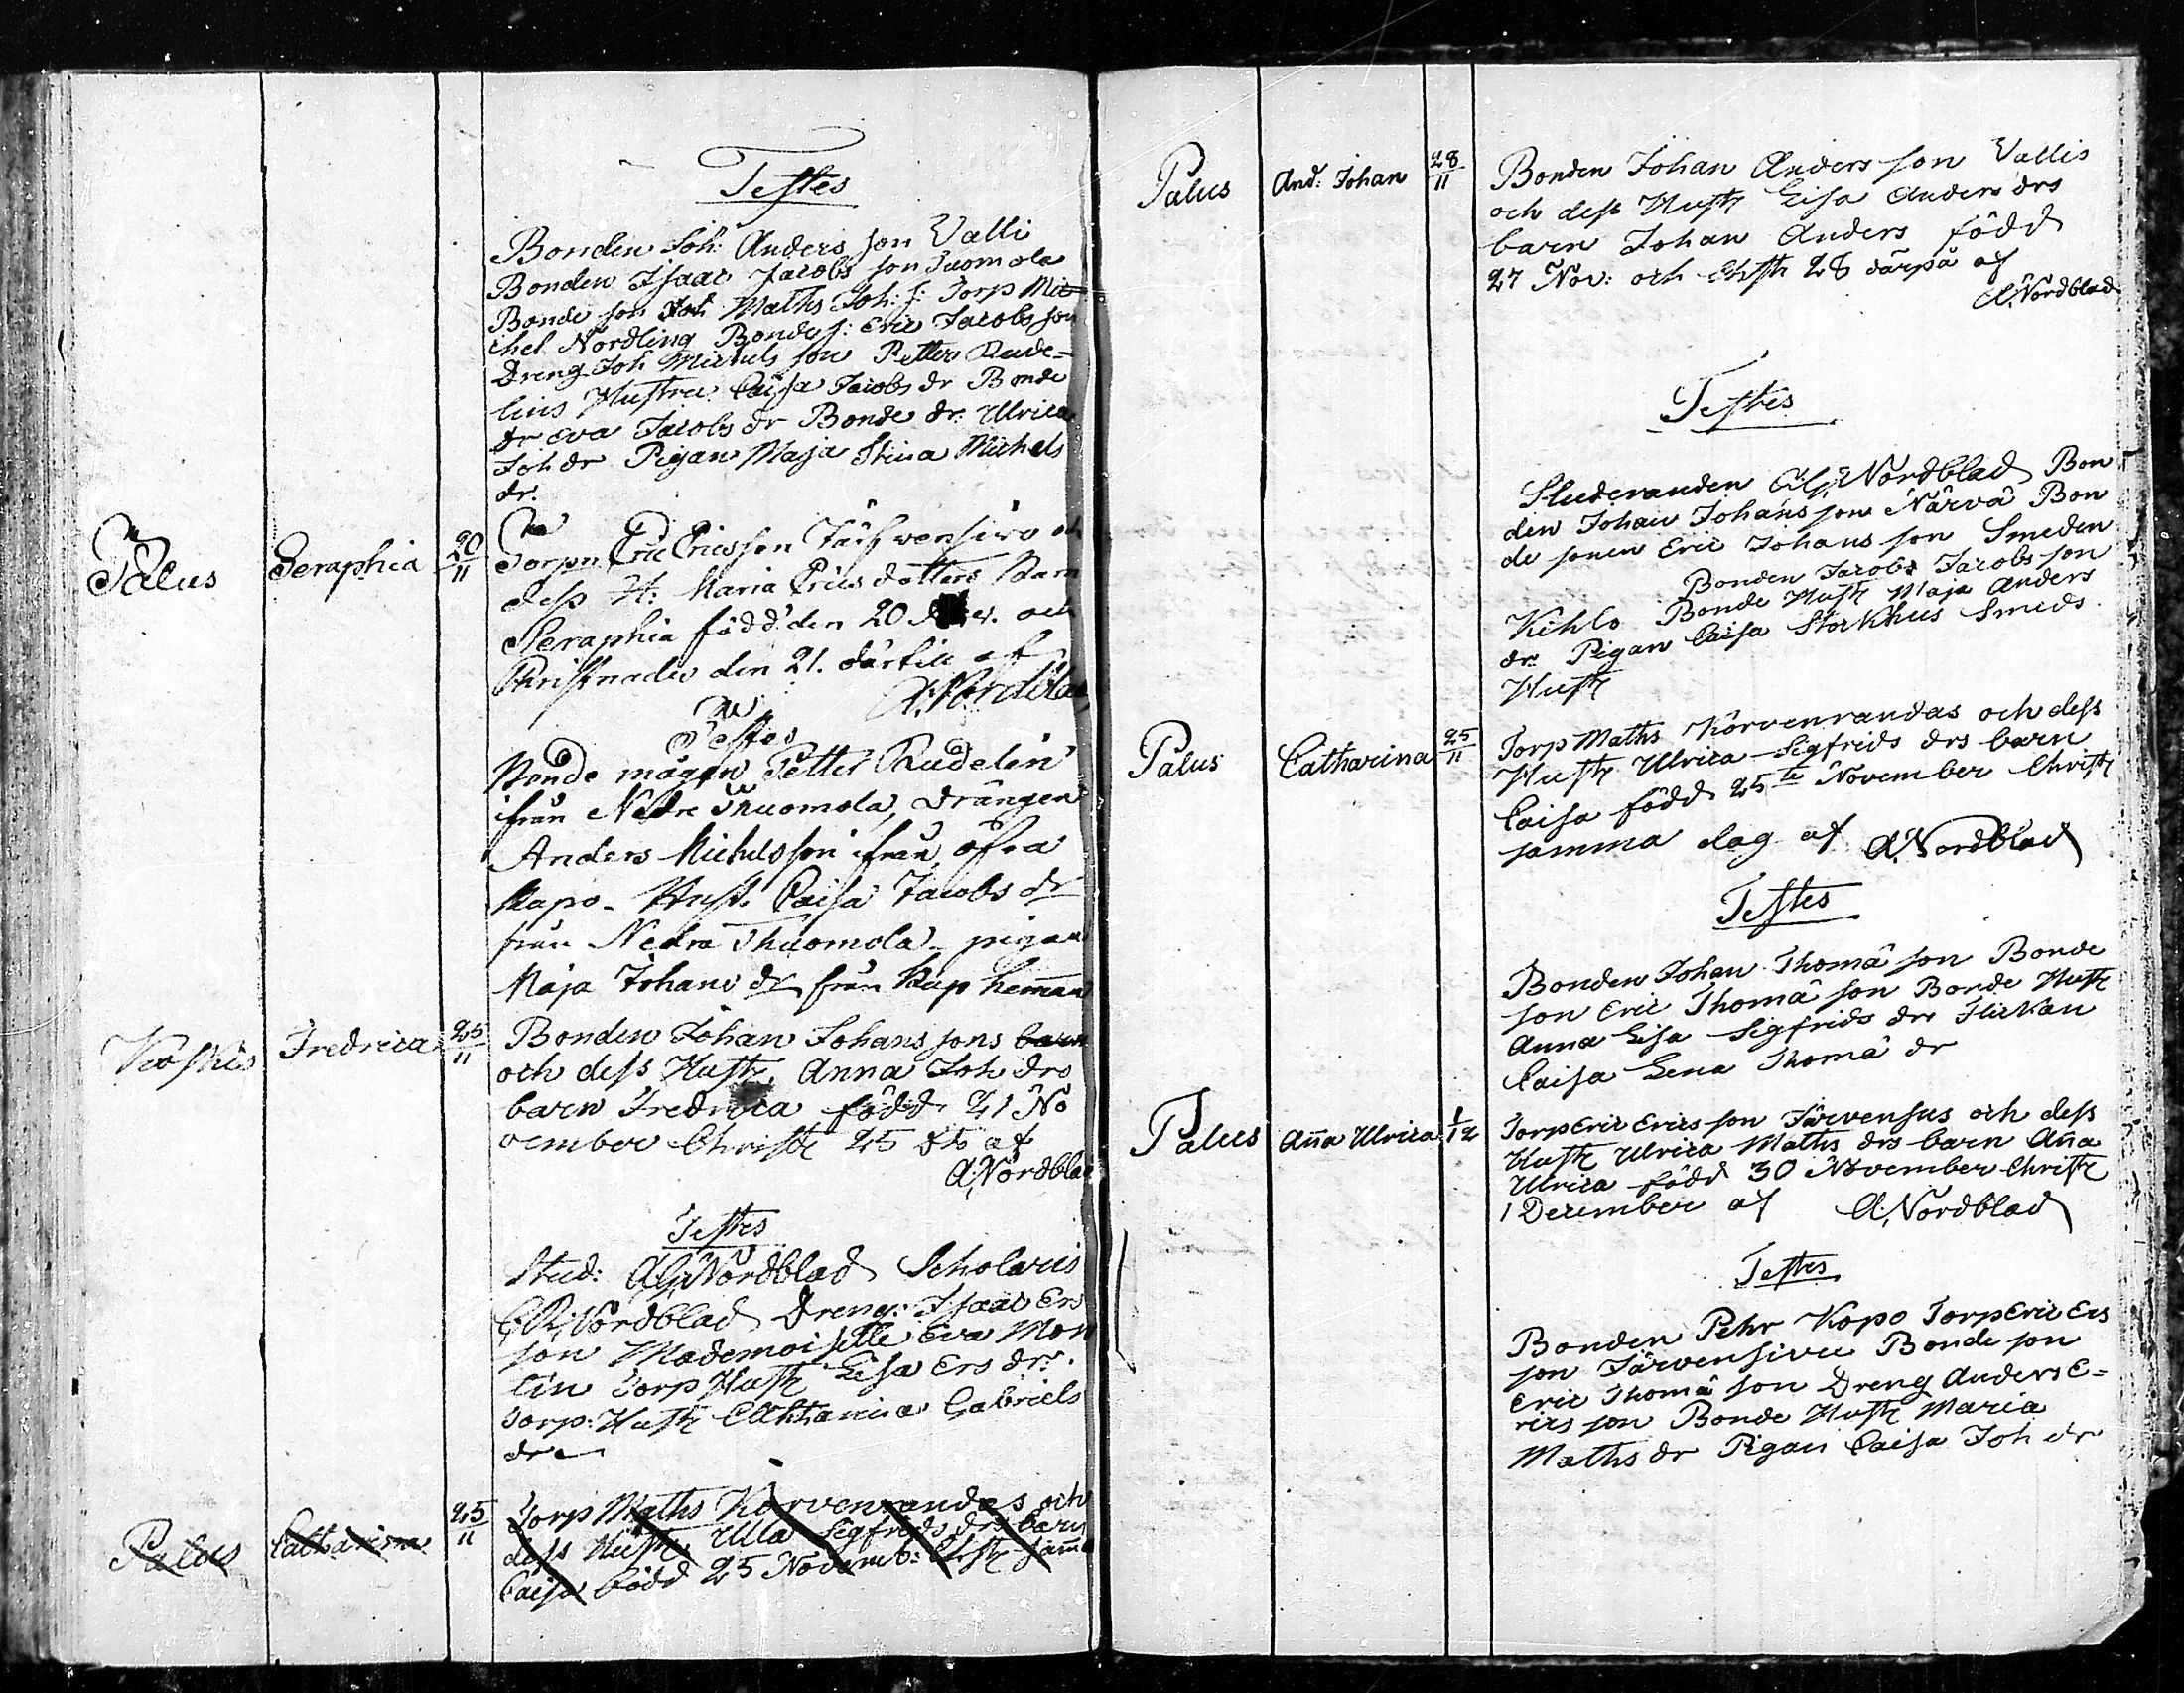 Testes
Bonden Joh: Anders son Valli
Bonden Isaac Jacobs son Juomola
Bonde son Joh Maths Joh: s: Torp Mic
chel Nordling Bonde s: Eric Jacobs son
Dreng Joh Michels son Petter Rude=
lins Hustru Caisa Jacobs dr Bonde
dr Eva Jacobs dr Bonde dr: Ulrica
Joh dr Pigan Maja Stina Michels
dr.
Palus Seraphia 20/11 Torpn Eric Ericsson Järfwensivu
dess H: Maria Erics dotters Barn
Seraphia född den 20 och
Christnades den 21. därtill af
A. Nordblad
Testes
Bonde mågen Petter Rudelin
ifrån Nedre Thuomola, Drängen
Anders Michelsson ifrån öfra
Kapo - Hust. Caisa Jacobs dr
från Nedra Thuomola - pigan
Maja Johans dr från Kap heman
Koskis Fredrica 25/11 Bonden Johan Johans sons barn
och dess Hustr Anna Joh drs
barn Fredrica född 21 No
vember Christr 25 af
A. Nordblad
Testes
Stud: A.G. Nordblad Scholaris
C.R. Nordblad Dreng: Isaac Ers
son Mademoiselle Eva Mon
tin Torp Hustr Lisa Ers dr.
Torp: Hustr Cathharina Gabriels
dr
Palus Catharina 25/11 Torp Maths Korvenrandas och
dess Hustr Ulla Sigfrids drs barn
Caisa född 25 Novemb: Chrstr samma
Palus And: Johan 28/11 Bonden Johan Anders son Vallis
och dess Hustr Lisa Anders drs
barn Johan Anders född
27 Nov: och Chrstr 28 därpå af
A. Nordblad
Testes
Studeranden A.G. Nordblad Bon
den Johan Johans son Närvä Bon
de sonen Eric Johans son Smeden
Bonden Jacobs Jacobs son
Kihlo Bonde Hustr Maja Anders
dr. Pigan Caisa Storkhus Smeds
Hustr
Palus Catharina 25/11 Torp Maths Körvenrandas och dess
Hustr Ulrica Sigfrids drs barn
Caisa född 25te November Christr
samma dag af A. Nordblad
Testes
Bonden Johan Thomä son Bonde
son Eric Thomä son Bonde Hustr
Anna Lisa Sigfrids dr Flickan
Caisa Lena Thomä dr
Palus Aña Ulrica 1/12 Torp Eric Erics son Järvensus och dess
Hustr Ulrica Maths drs barn Aña
Ulrica född 30 November Christr
1 December af A. Nordblad
Testes
Bonden Pehr Kopo Torp Eric Ers
son Järvensivu Bonde son
Eric Thomä son Dreng Anders E=
rics son Bonde Hustr Maria
Maths dr Pigan Caisa Joh dr